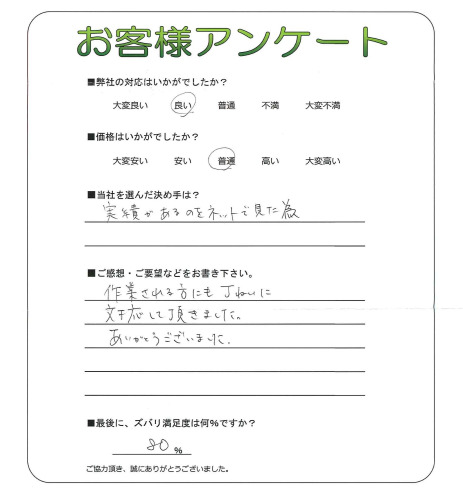 お客様アンケート
■弊社の対応はいかがでしたか?
大変良い 良い 普通 不満 大変不満
■価格はいかがでしたか?
大変安い 安い 普通 高い 大変高い
■当社を選んだ決め手は?
実績があるのをネットで見た為
■ご感想・ご要望などをお書き下さい。
作業される方にも丁ねいに
対応して頂きました。
ありがとうございました。
■最後に、ズバリ満足度は何%ですか?
80 %
ご協力頂き、誠にありがとうございました。